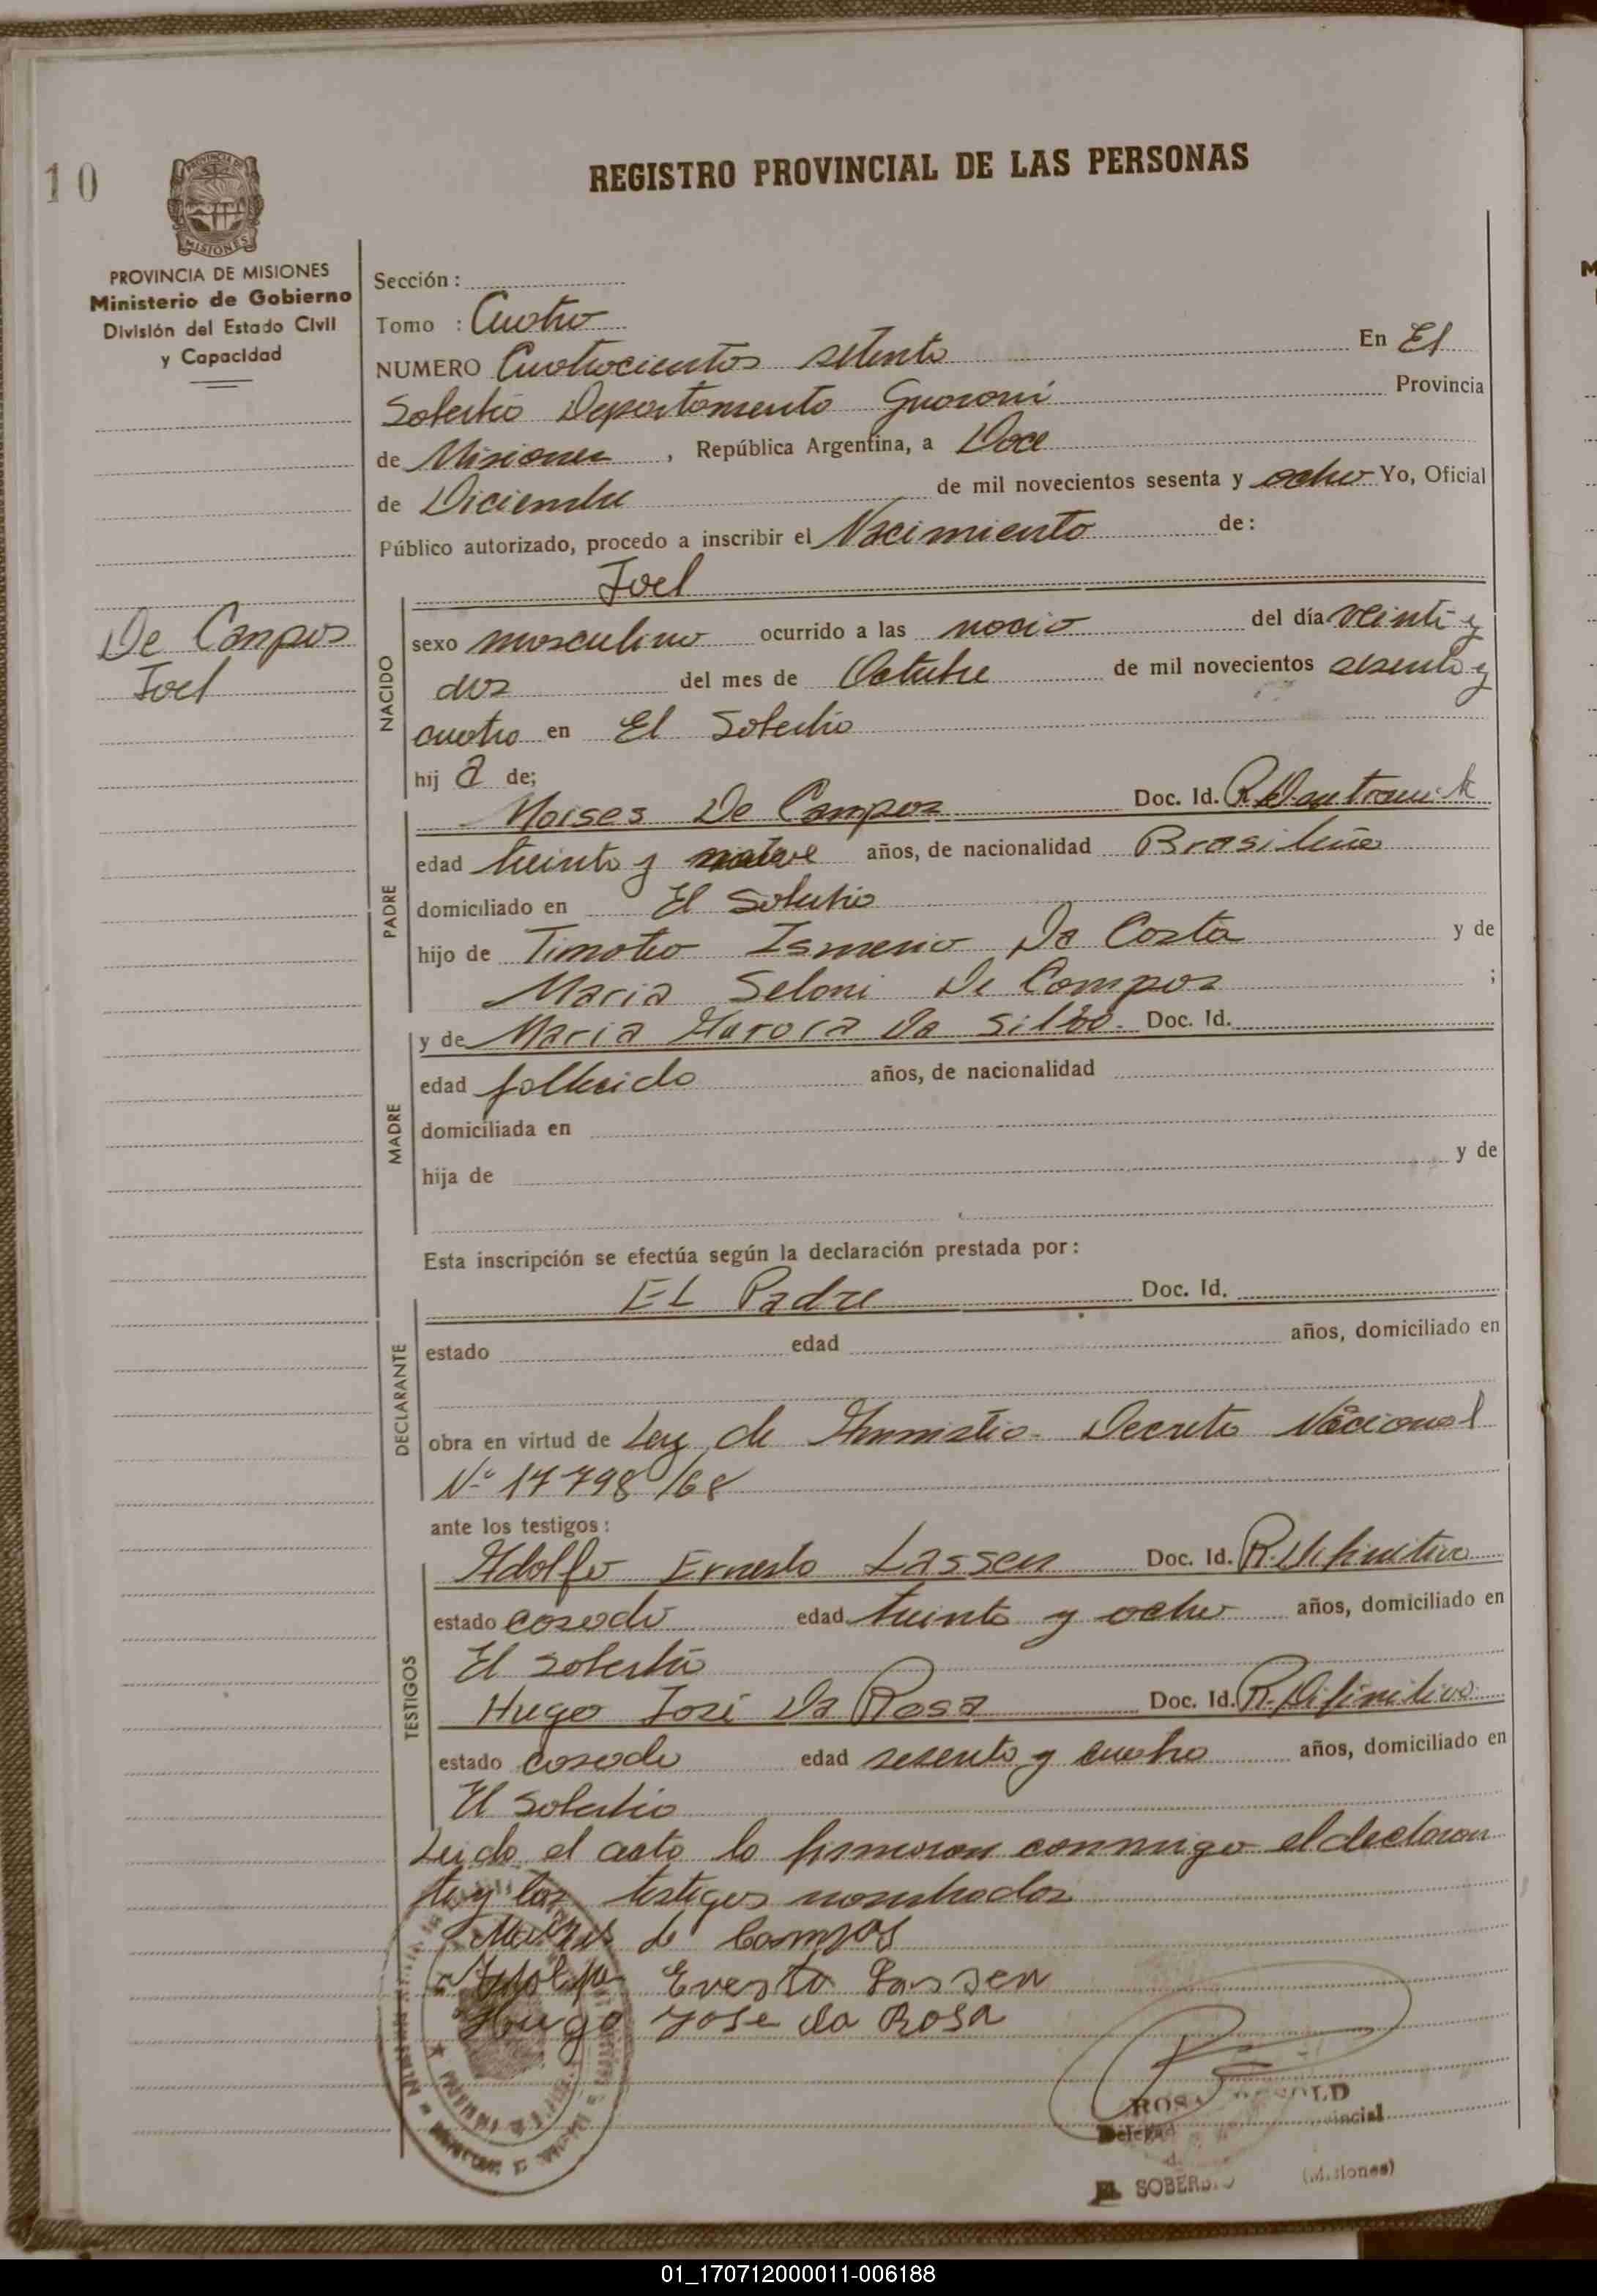 10
PROVINCIA DE MISIONES
Ministerio de Gobierno
División del Estado Civil
y Capacidad
REGISTRO PROVINCIAL DE LAS PERSONAS
Sección :
Tomo : Cuatro
NUMERO Cuatrocientos setenta En El
Soberbio Departamento Guaraní Provincia
de Misiones, República Argentina, a Doce
de Diciembre de mil novecientos sesenta y ocho Yo, Oficial
Público autorizado, procedo a inscribir el Nacimiento de:
De Campos
Joel
NACIDO
Joel
sexo masculino ocurrido a las del día veinti y
dos del mes de Octubre de mil novecientos sesenta y
cuatro en El Soberbio
hij a de;
PADRE
Moises De Campos Doc. Id.
edad treinta y años, de nacionalidad Brasileña
domiciliado en El Soberbio
hijo de Timoteo Ismenio Da Costa y de
Maria Seloni De Campos ;
MADRE
y de Maria Aurora Da Silva. Doc. Id.
edad fallecida años, de nacionalidad
domiciliada en
hija de y de
Esta inscripción se efectúa según la declaración prestada por :
DECLARANTE
EL Padre Doc. Id.
estado edad años, domiciliado en
obra en virtud de Ley de Amnistia. Decreto Nacional
Nº 17798/68
ante los testigos :
TESTIGOS
Adolfo Ernesto Lassen Doc. Id. R. Definitiva
estado casado edad treinta y ocho años, domiciliado en
El Soberbio
Hugo José Da Rosa Doc. Id. R. Difinitivo
estado casado edad sesenta y cuatro años, domiciliado en
El Soberbio
Leido el acta la firmaran conmigo el declaran
te y los testigos nombrados
Moises de Campos
Adolfo Evesto Lassen
Hugo Jose da Rosa
EL SOBERBIO (Misiones)
01_170712000011-006188